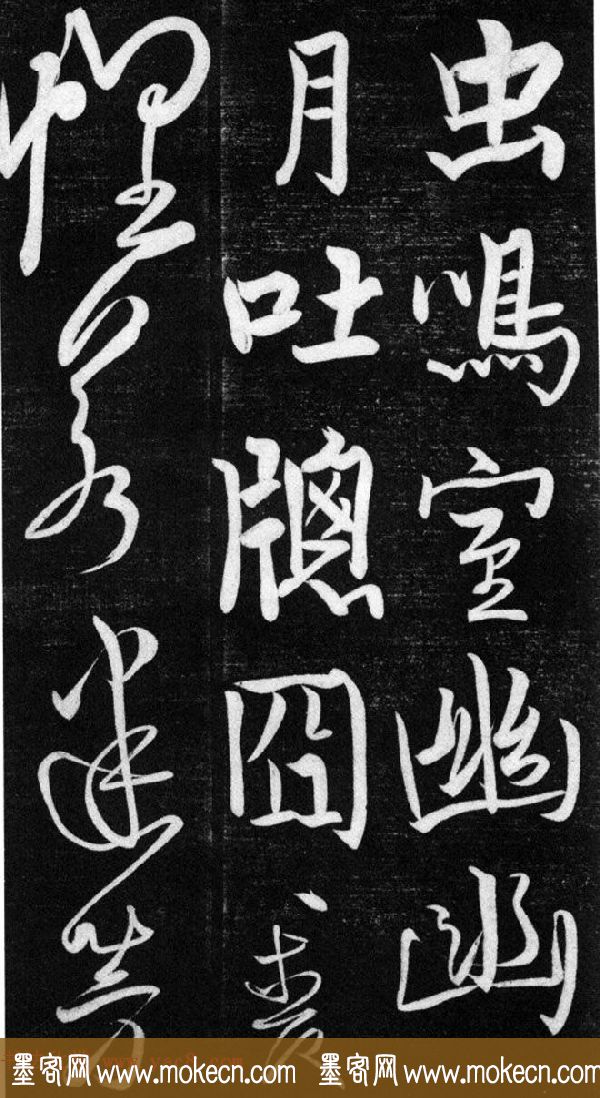 虫鳴室幽幽
月吐牕囧々喪
懷若迷芳
墨客网 www.mokecn.com 墨客网 www.mokecn.com